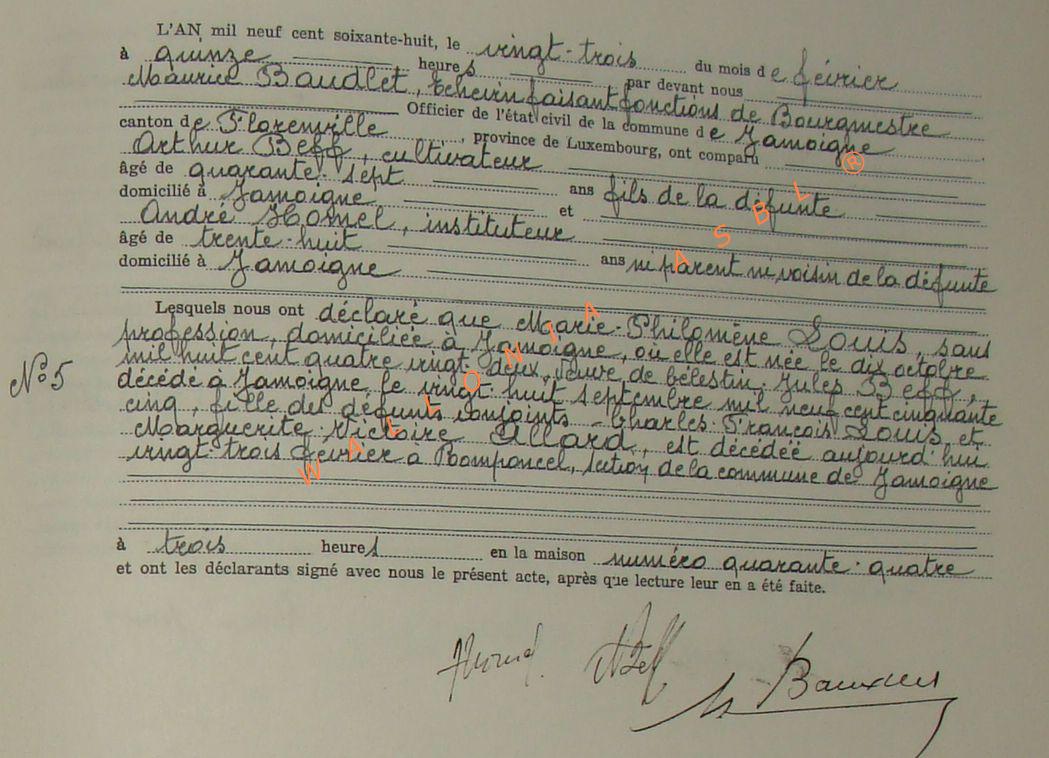 L'AN mil neuf cent soixante-huit, le vingt-trois du mois de février
à quinze heures par devant nous
Maurice Baudlet, Echevin faisant fonctions de Bourgmestre
Officier de l'état civil de la commune de Jamoigne
canton de Florenville, province de Luxembourg, ont comparu
Arthur Beff, cultivateur
âgé de quarante-sept ans fils de la défunte
domicilié à Jamoigne et
André Hornel, instituteur
âgé de trente-huit ans ni parent ni voisin de la défunte
domicilié à Jamoigne
Lesquels nous ont déclaré que Marie-Philomène Louis, sans
profession, domiciliée à Jamoigne, où elle est née le dix octobre
mil huit cent quatre vingt-deux, veuve de Célestin-Jules Beff,
décédé à Jamoigne le vingt huit septembre mil neuf cent cinquante
cinq, fille des défunts conjoints - Charles-François Louis et
Marguerite-Victoire Allard, est décédée aujourd'hui
vingt-trois février à section de la commune de Jamoigne
N°5
à trois heures en la maison numéro quarante-quatre
et ont les déclarants signé avec nous le présent acte, après que lecture leur en a été faite.
WALLONIA ASBL ®